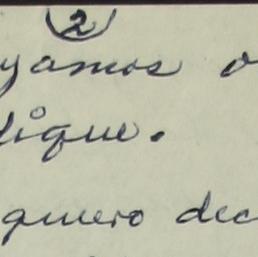 2
yamos o
lique.
quiero dec